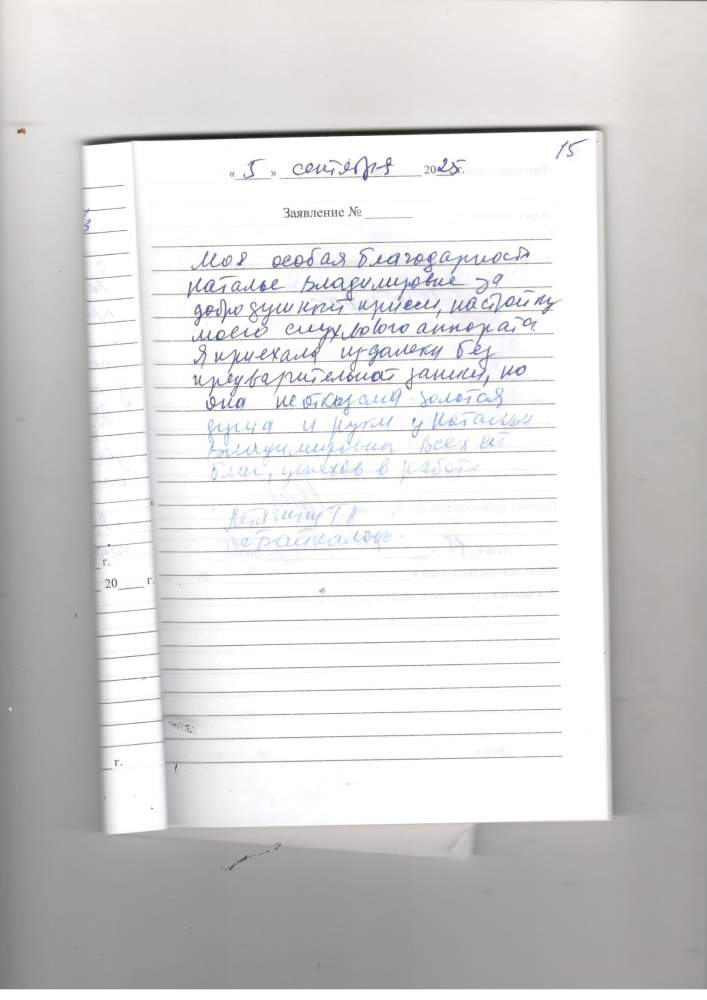 15
« 5 » сентября 2025 г.
Заявление № ______
Моя особая благодарность
Наталье Владимировне за
добродушный прием, настройку
моего слухового аппарата
Я приехала издалека без
предварительной записи, но
она не отказала. Золотая
душа и руки у Натальи
Владимировны. Всех ей
благ, успехов в работе
г.
20____ г.
г.